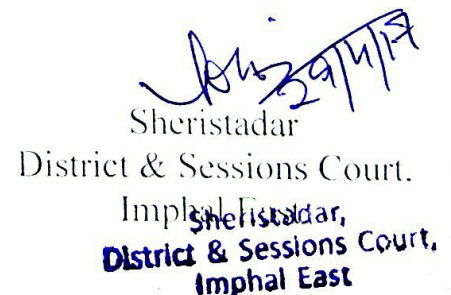 Sheristadar
District & Sessions Court.
Imphal East
Sheristadar,
District & Sessions Court,
Imphal East